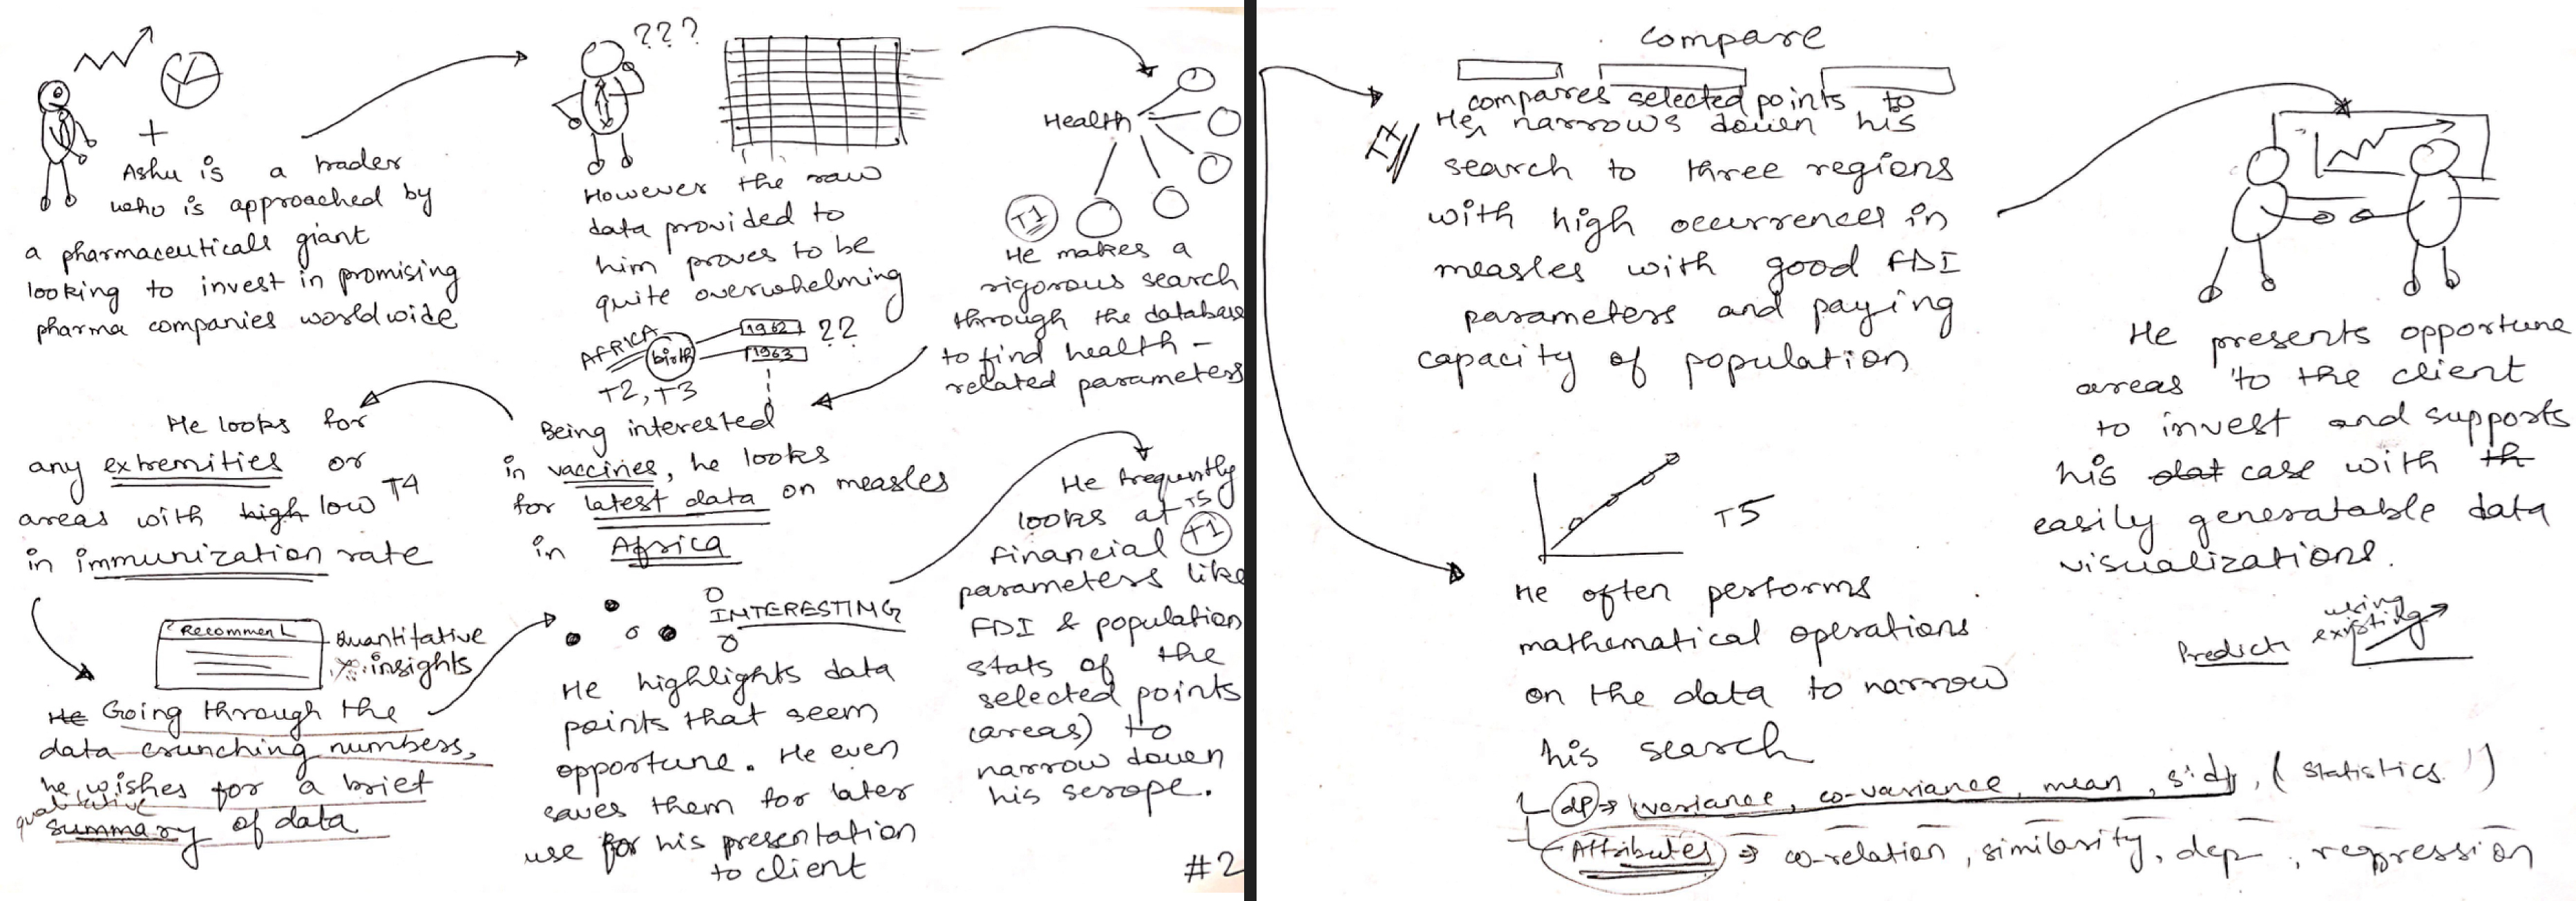 Ashu is a trader
who is approached by
a pharmaceuticals giant
looking to invest in promising
pharma companies worldwide
???
However the raw
data provided to
him proves to be
quite overwhelming
Health
T1
He makes a
rigorous search
through the database
to find health -
related parameters
AFRICA
birth
1962
??
1963
T2, T3
Being interested
in vaccines, he looks
for latest data on measles
in Africa
He looks for
any extremities or
areas with high low T4
in immunization rate
Recommen
Quantitative
insights
He Going through the
data crunching numbers,
he wishes for a brief
qualitative
summary of data
INTERESTING
He highlights data
points that seem
opportune. He even
saves them for later
use for his presentation
to client
He frequently
looks at T5
financial T1
parameters like
FDI & population
stats of the
selected points
(areas) to
narrow down
his scope.
#2
compare
compares selected points to
He narrows down his
search to three regions
with high occurrences in
measles with good FDI
parameters and paying
capacity of population
T5
He often performs
mathematical operations
on the data to narrow
his search
dp → variance, co-variance, mean, (statistics)
Attributes → co-relation, similarity, dep, regression
He presents opportune
areas to the client
to invest and supports
his case with th
easily generatable data
visualizations.
Predict
using
existing